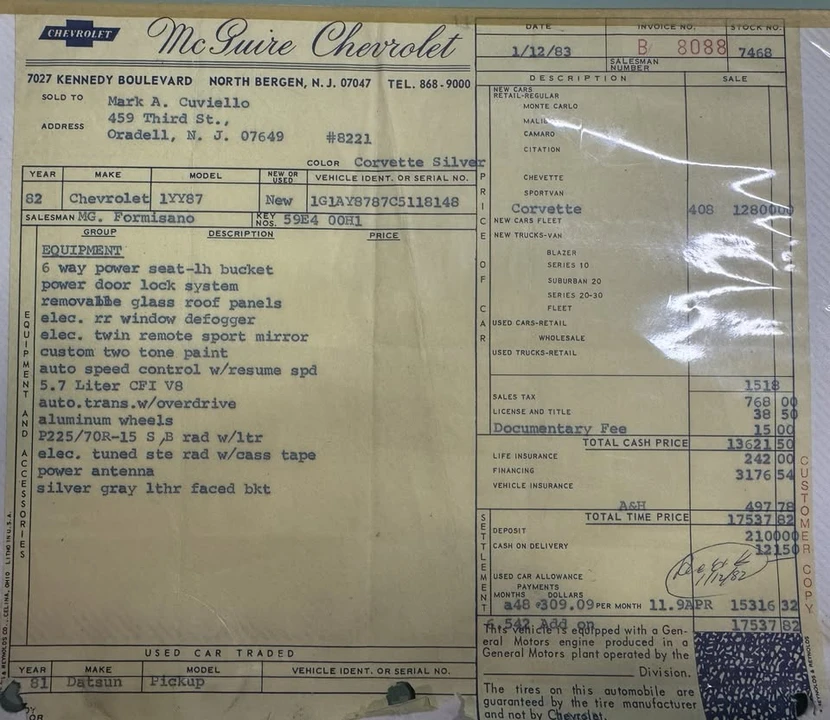 CHEVROLET
McGuire Chevrolet
7027 KENNEDY BOULEVARD NORTH BERGEN, N.J. 07047 TEL. 868-9000
DATE INVOICE NO. STOCK NO.
1/12/83 B 8088 7468
SALESMAN NUMBER
SOLD TO Mark A. Cuviello
ADDRESS 459 Third St.,
Oradell, N. J. 07649 #8221
COLOR Corvette Silver
YEAR MAKE MODEL NEW OR USED VEHICLE IDENT. OR SERIAL NO.
82 Chevrolet 1YY87 New 1G1AY8787C5118148
SALESMAN MG. Formisano KEY NOS. 59E4 00H1
GROUP DESCRIPTION PRICE
EQUIPMENT AND ACCESSORIES
EQUIPMENT
6 way power seat-lh bucket
power door lock system
removable glass roof panels
elec. rr window defogger
elec. twin remote sport mirror
custom two tone paint
auto speed control w/resume spd
5.7 Liter CFI V8
auto.trans.w/overdrive
aluminum wheels
P225/70R-15 S,B rad w/ltr
elec. tuned ste rad w/cass tape
power antenna
silver gray lthr faced bkt
USED CAR TRADED
YEAR MAKE MODEL VEHICLE IDENT. OR SERIAL NO.
81 Datsun Pickup
DESCRIPTION SALE
PRICE OF CAR
NEW CARS
RETAIL-REGULAR
MONTE CARLO
CAMARO
CITATION
CHEVETTE
SPORTVAN
Corvette 408 1280000
NEW CARS FLEET
NEW TRUCKS-VAN
BLAZER
SERIES 10
SUBURBAN 20
SERIES 20-30
FLEET
USED CARS-RETAIL
WHOLESALE
USED TRUCKS-RETAIL
1518
SALES TAX 768 00
LICENSE AND TITLE 38 50
Documentary Fee 15 00
TOTAL CASH PRICE 13621 50
LIFE INSURANCE 242 00
FINANCING 3176 54
VEHICLE INSURANCE
A&H 497 78
TOTAL TIME PRICE 17537 82
SETTLEMENT
DEPOSIT 210000
CASH ON DELIVERY 12150
1/12/82
USED CAR ALLOWANCE
PAYMENTS
MONTHS DOLLARS
a48 309.09 PER MONTH 11.9APR 15316 32
6.542 Add on 17537 82
This vehicle is equipped with a General Motors engine produced in a General Motors plant operated by the
Division.
The tires on this automobile are
guaranteed by the tire manufacturer
and not by Chevrolet.
CUSTOMER COPY